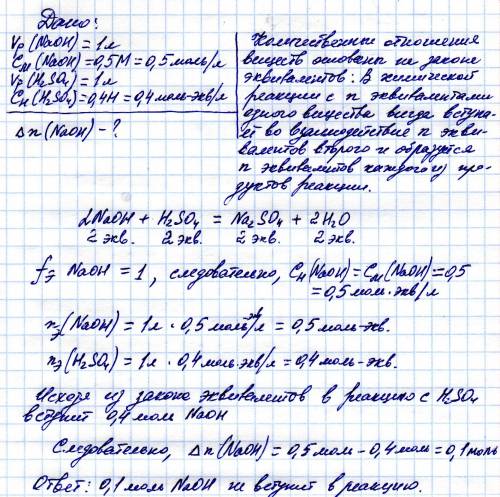 Дано:
Vр(NaOH) = 1 л
CМ(NaOH) = 0,5М = 0,5 моль/л
Vр(H₂SO₄) = 1 л
CН(H₂SO₄) = 0,4Н = 0,4 моль-экв/л
Δn(NaOH) - ?
Количественные отношения
веществ основаны на законе
эквивалентов: В химической
реакции с n эквивалентами
одного вещества всегда вступа-
ет во взаимодействие n экви-
валентов второго и образуется
n эквивалентов каждого из про-
дуктов реакции.
2NaOH + H₂SO₄ = Na₂SO₄ + 2H₂O
2 экв. 2 экв. 2 экв. 2 экв.
fэ NaOH = 1, следовательно, CН(NaOH) = CМ(NaOH) = 0,5
= 0,5 моль-экв/л
nэ(NaOH) = 1л · 0,5 моль-экв/л = 0,5 моль-экв.
nэ(H₂SO₄) = 1л · 0,4 моль-экв/л = 0,4 моль-экв.
Исходя из закона эквивалентов в реакцию с H₂SO₄
вступит 0,4 моль NaOH
Следовательно, Δn(NaOH) = 0,5 моль - 0,4 моль = 0,1 моль
Ответ: 0,1 моль NaOH не вступит в реакцию.